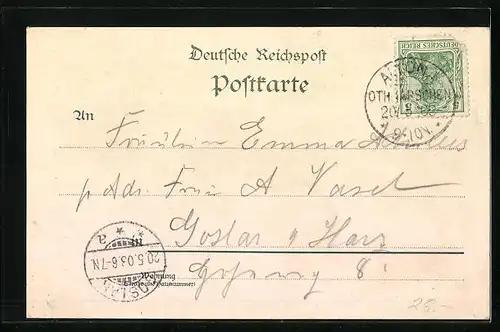 Deutsche Reichspost
Postkarte
DEUTSCHES REICH
ALTONA
OTHMARSCHEN
9-10V.
An
Fräulein Emma
p Adr. Frau A Vasel
Goslar a Harz
20.5.03.6-7N.
GOSLAR
a
Wohnung
(Straße und Hausnummer)
8
25.-